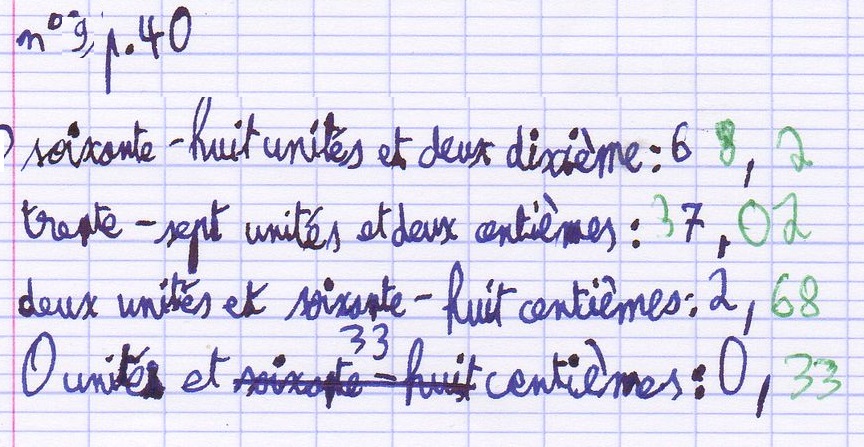 n° 9, p.40
soixante-huit unités et deux dixième : 68,2
trente-sept unités et deux centièmes : 37,02
deux unités et soixante-huit centièmes : 2,68
33
0 unités et soixante-huit centièmes : 0,33